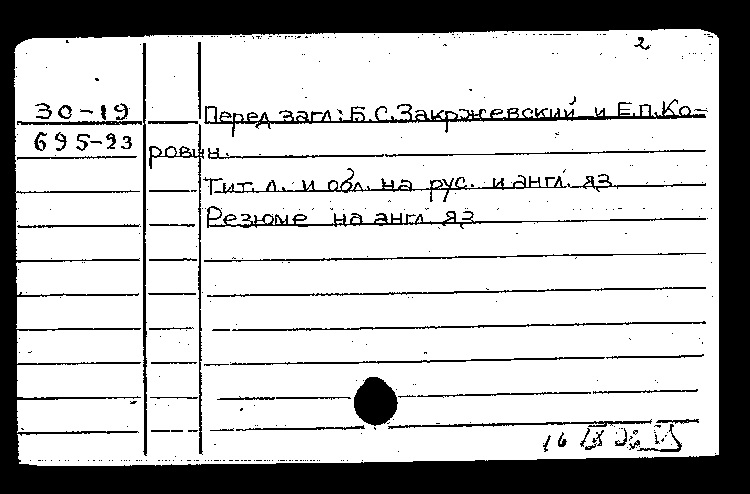 2
30-19 Перед загл: Б.С.Закржевский и Е.П.Ко=
695-23 ровин.
Тит. л. и обл. на рус. и англ. яз
Резюме на англ яз
16